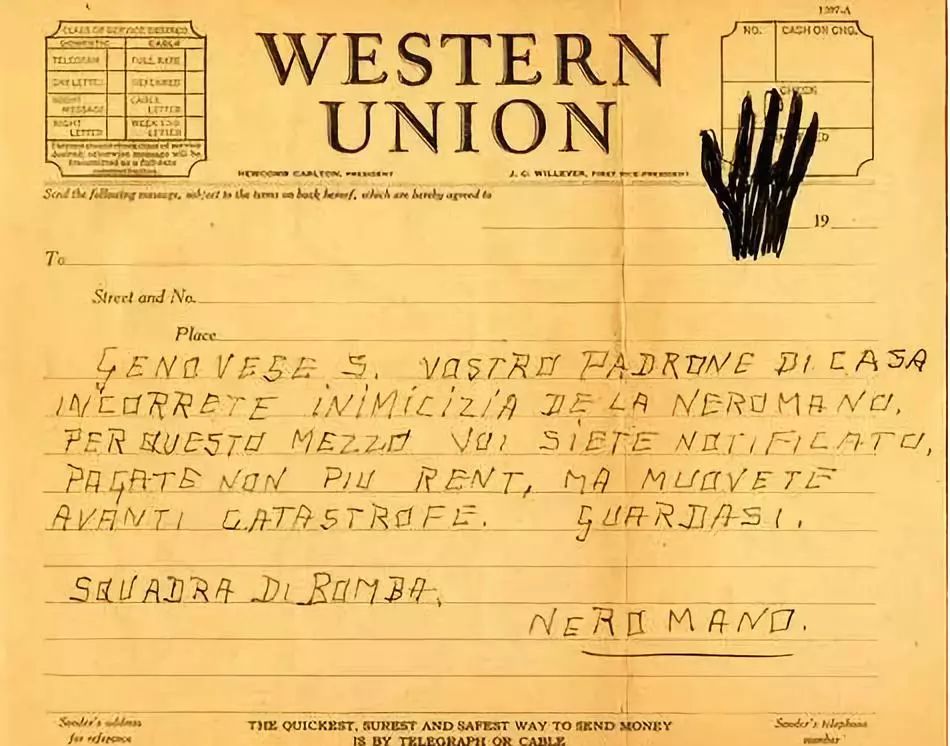 1207-A
CLASS OF SERVICE DESIRED
DOMESTIC CABLE
TELEGRAM FULL RATE
DAY LETTER DEFERRED
NIGHT MESSAGE CABLE LETTER
NIGHT LETTER WEEK END LETTER
Patrons should check class of service
desired; otherwise message will be
transmitted as a full-rate
communication.
WESTERN
UNION
NO. CASH OR CHG.
CHECK
NEWCOMB CARLTON, PRESIDENT J. C. WILLEVER, FIRST VICE-PRESIDENT
Send the following message, subject to the terms on back hereof, which are hereby agreed to
19
To
Street and No.
Place
GENOVESE S. VOSTRO PADRONE DI CASA
INCORRETE INIMICIZIA DE LA NEROMANO.
PER QUESTO MEZZO VOI SIETE NOTIFICATO,
PAGATE NON PIU RENT, MA MUOVETE
AVANTI CATASTROFE. GUARDASI.
SQUADRA DI BOMBA.
NERO MANO.
Sender's address
for reference
THE QUICKEST, SUREST AND SAFEST WAY TO SEND MONEY
IS BY TELEGRAPH OR CABLE
Sender's telephone
number